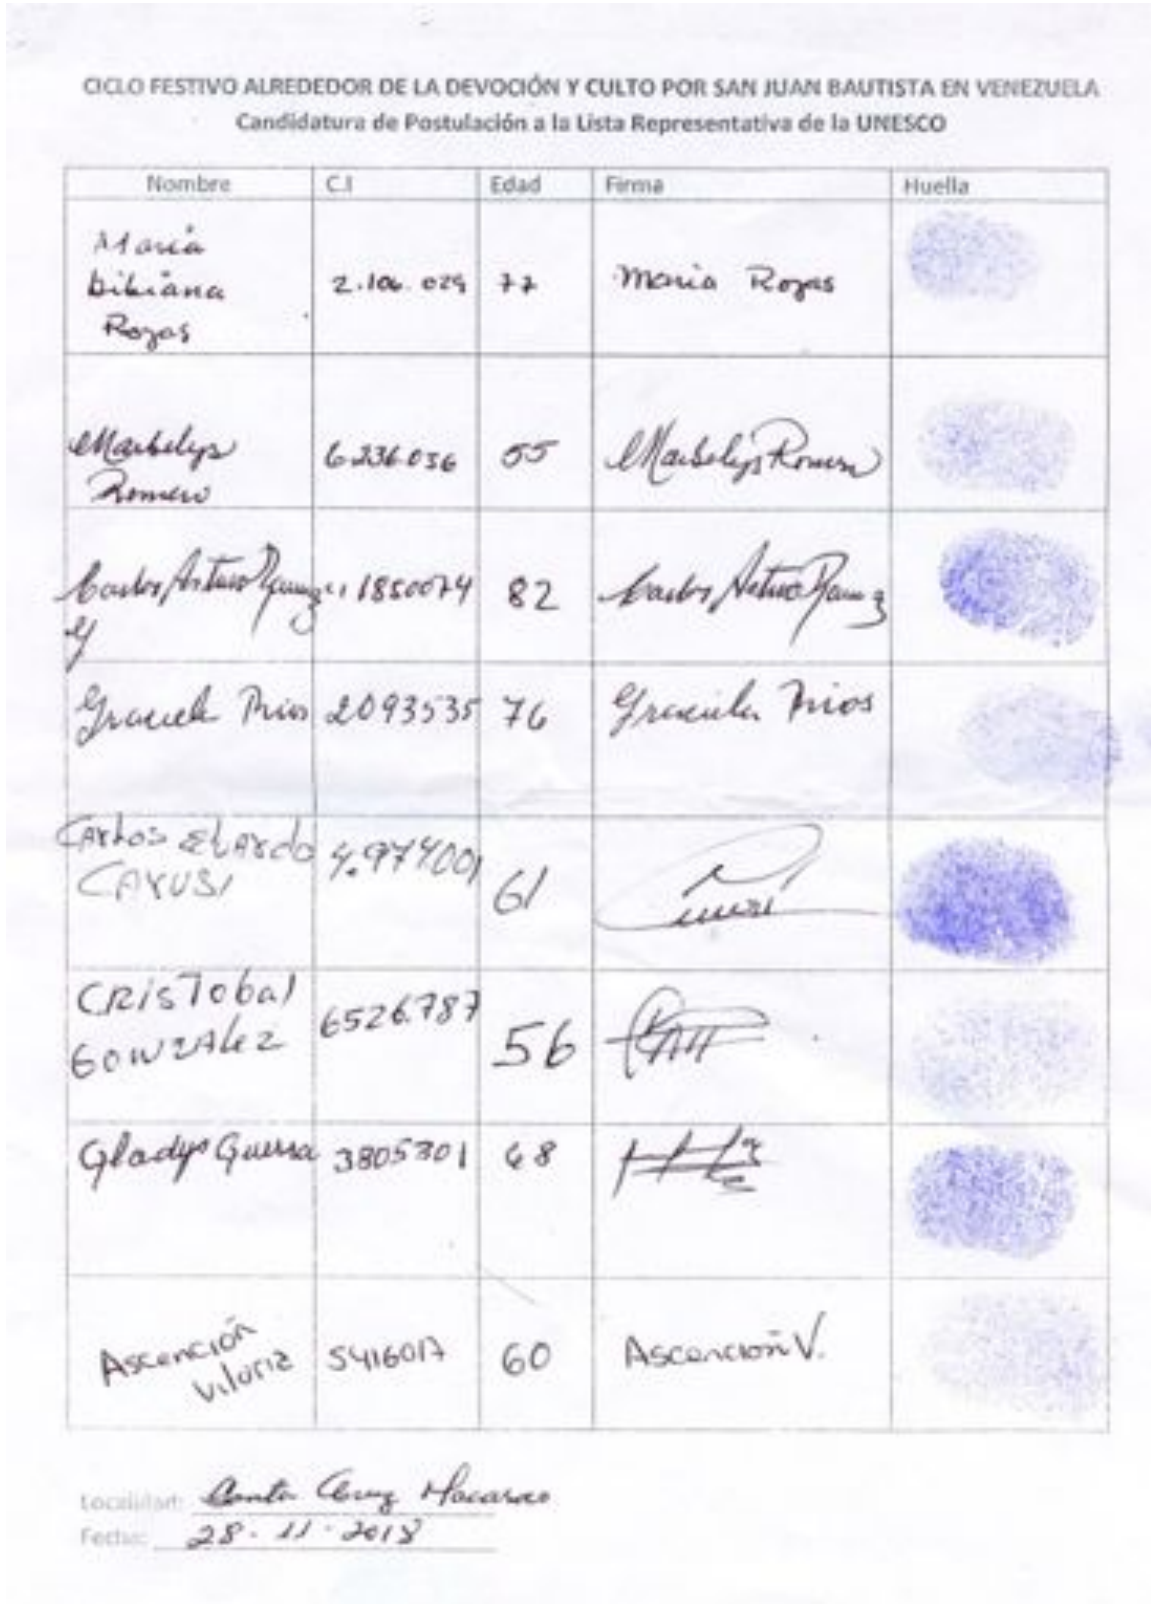 CICLO FESTIVO ALREDEDOR DE LA DEVOCIÓN Y CULTO POR SAN JUAN BAUTISTA EN VENEZUELA
Candidatura de Postulación a la Lista Representativa de la UNESCO
Nombre C.I Edad Firma Huella
María
Bibiana
Rojas
2.106.029 77 Maria Rojas
Marbelys
Romero
6.236.036 55 Marbelys Romero
Carlos Arturo 1850074 82 Carlos Arturo
Graciela Frios 2093535 76 Graciela Frios
CARLOS EDARDO
CARUSI
4.974001 61
CRISTobal
GONZALEZ
6526.787 56
Gladys Guerra 3805301 68
Ascención
Viloria
5416017 60 Ascención V.
Localidad: Santa Cruz Macarao
Fecha: 28-11-2018